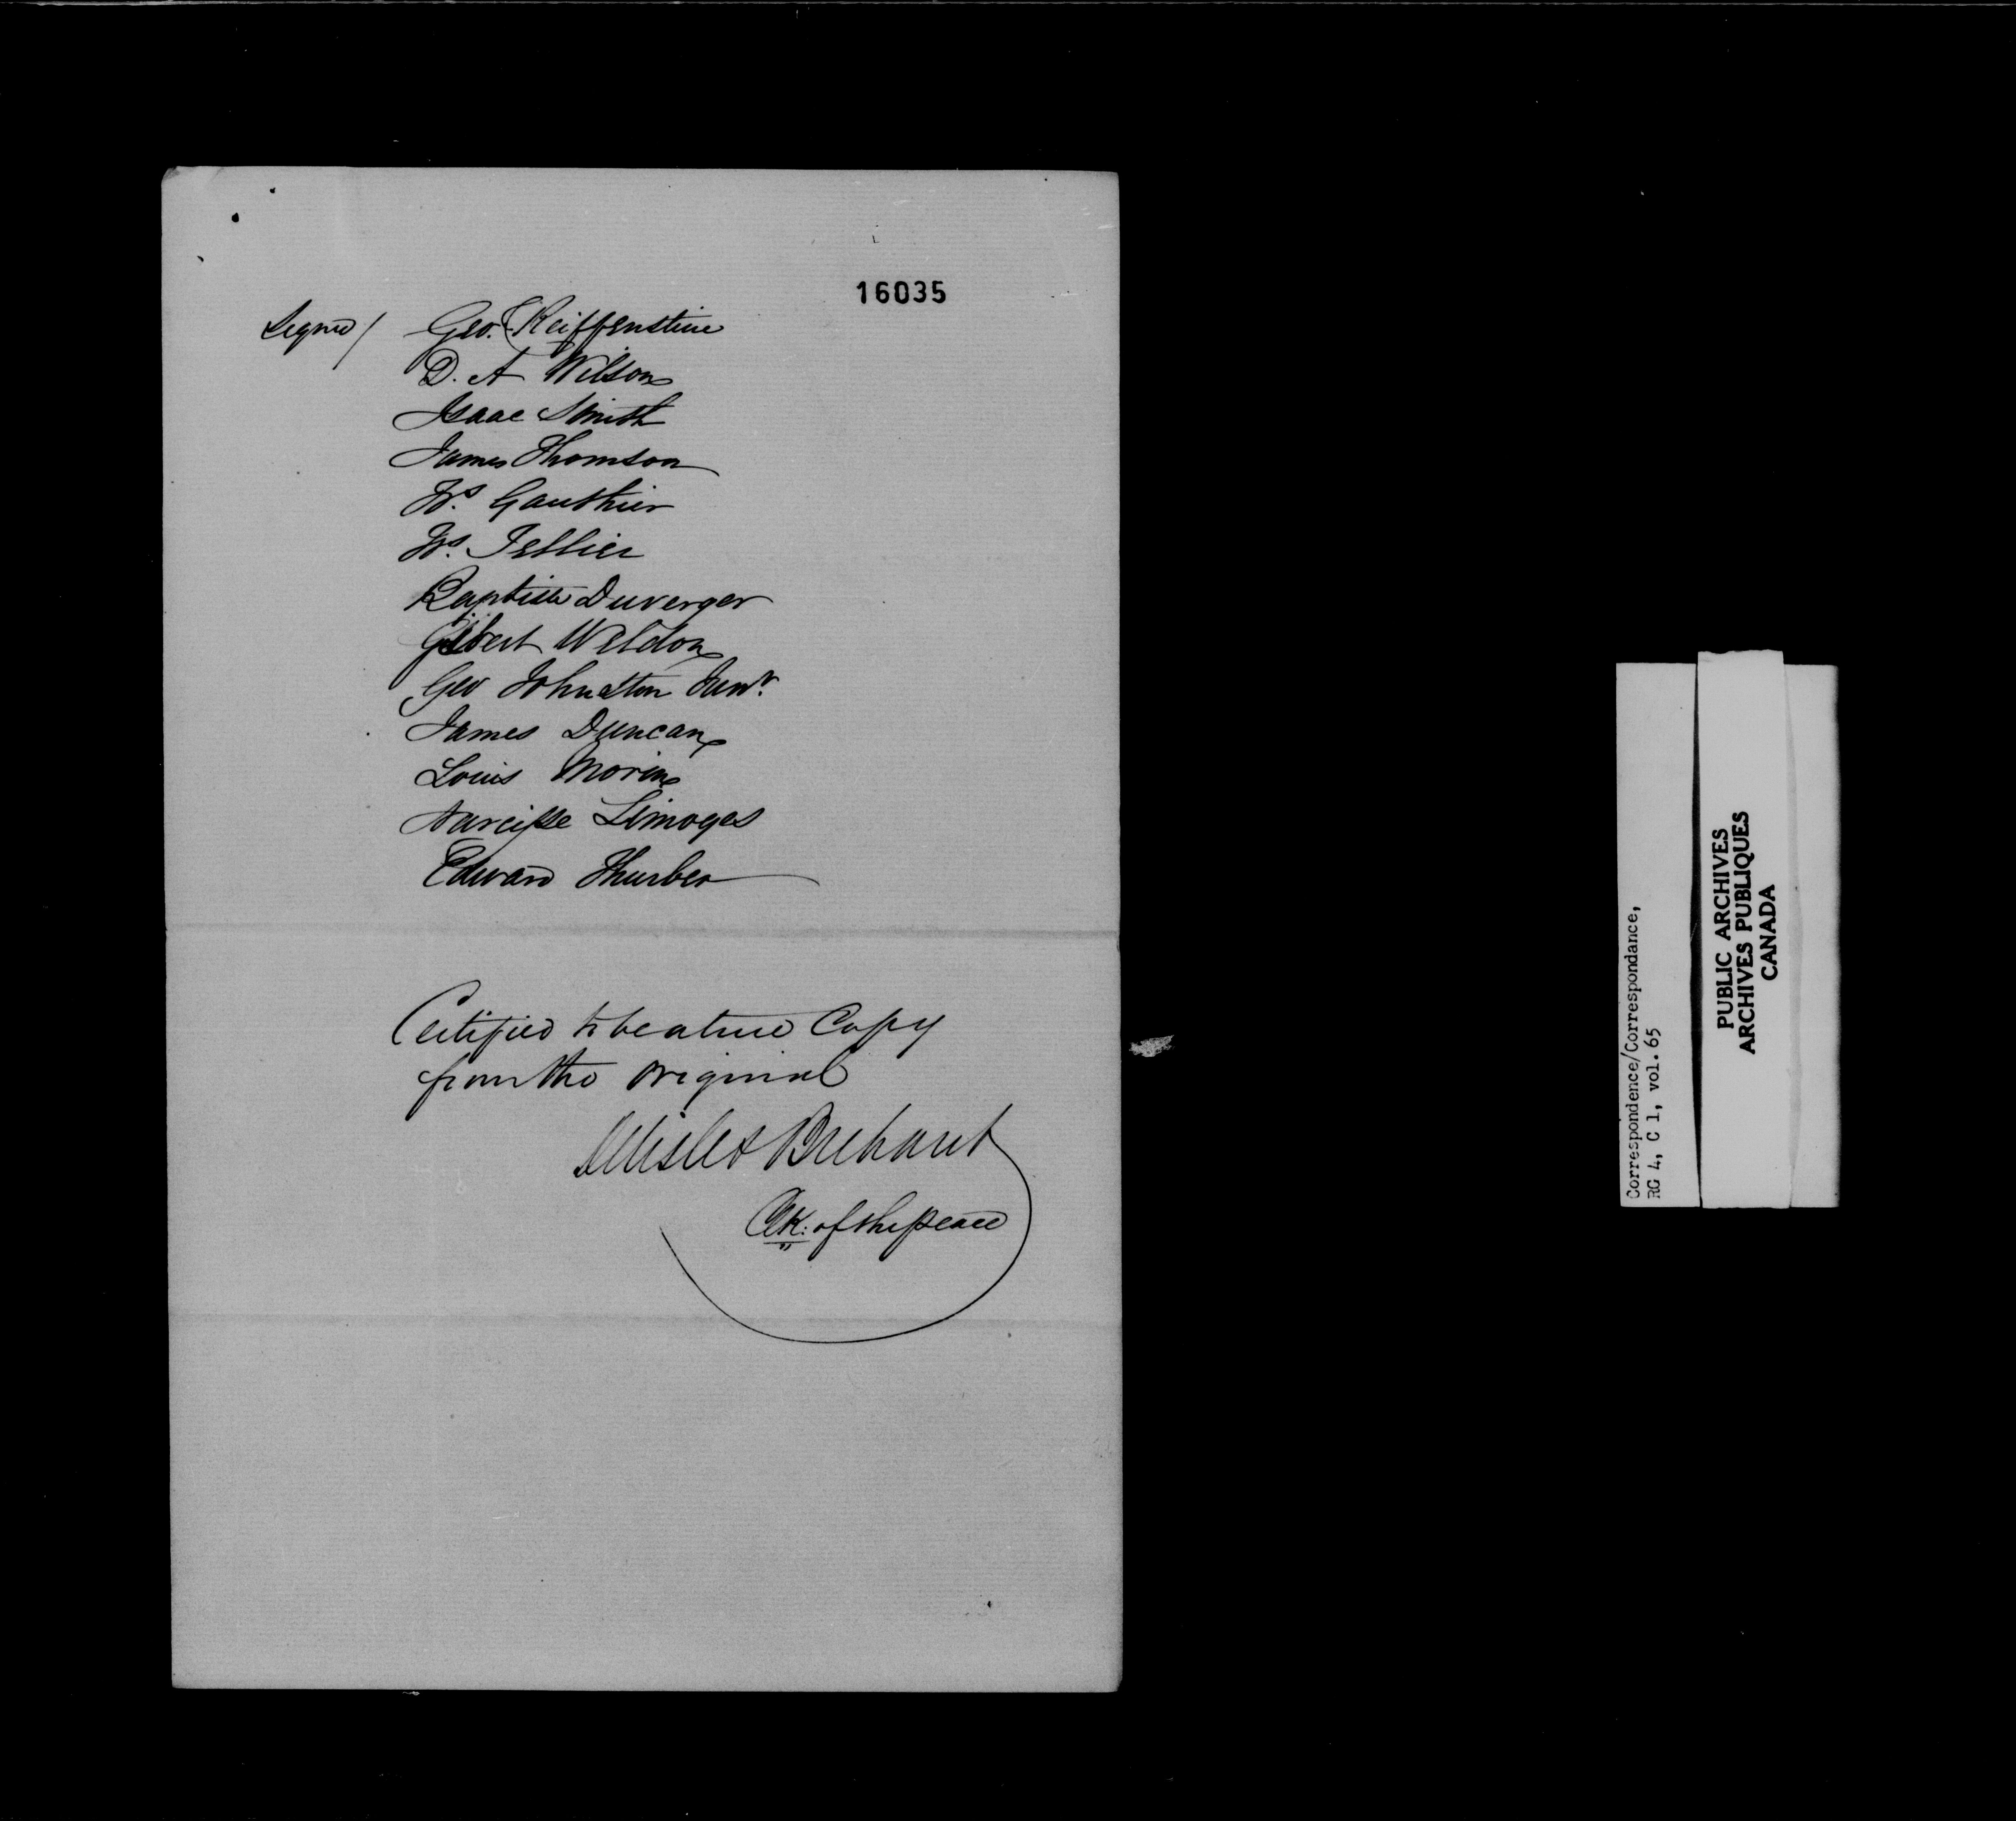 16035
Signed / Geo. Reiffenstine
D. A Wilson
Isaac Smith
James Thomson
Frs. Gauthier
Frs. Tellier
Baptiste Duverger
Gilbert Weldon
Geo Johnston Junr.
James Duncan
Louis Morin
Narcisse Limoges
Edward Thurber
Certified to be a true Copy
from the Original
Delisle & Brehaut
Clk: of the Peace
Correspondence/Correspondance,
RG 4, C 1, vol. 65
PUBLIC ARCHIVES
ARCHIVES PUBLIQUES
CANADA